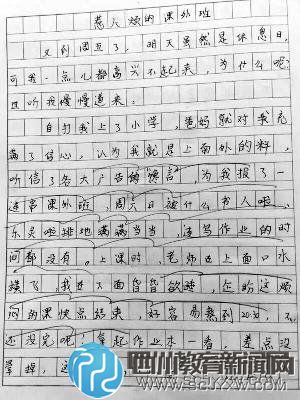 惹人烦的课外班
又到周五了，明天虽然是休息日，
可我一点儿都高兴不起来，为什么呢？
且听我慢慢道来。
自打我上了小学，爸妈就对我充
满了信心，认为我就是上面外的料，
听信了各大广告的，为我报了一
连串课外班，周六日被什么书人啦，
乐啦排地满满当当，连写作业的时
间都没有。上课时，老师在上面口水
横飞，我在下面昏昏欲睡，在盼这烦
闷的课快点结束，好容易熬到20:30，
还没完呢！拿起作业本一看，差点没
晕掉，这
四川教育新闻网
WWW.SCJYXW.COM